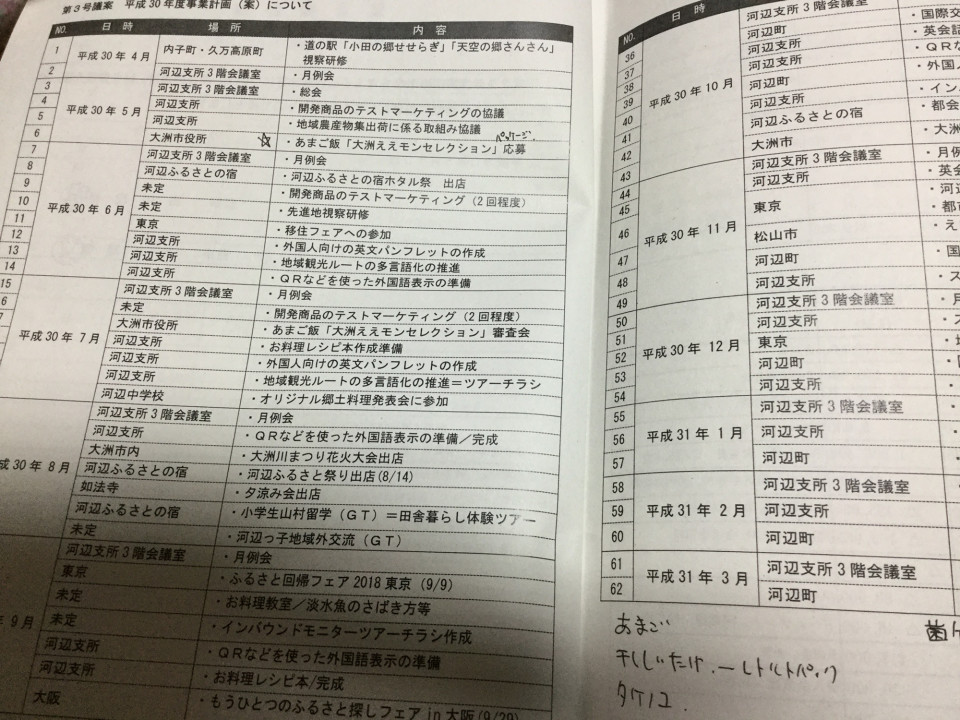 第3号議案 平成30年度事業計画（案）について
NO. 日時 場所 内容
1 平成30年 4月 内子町・久万高原町 ・道の駅「小田の郷せせらぎ」「天空の郷さんさん」
視察研修
2 河辺支所3階会議室 ・月例会
3 平成30年 5月 河辺支所3階会議室 ・総会
4 河辺支所 ・開発商品のテストマーケティングの協議
5 河辺支所 ・地域農産物集出荷に係る取組み協議
パッケージ
6 大洲市役所 ☆ ・あまご飯「大洲ええモンセレクション」応募
7 平成30年 6月 河辺支所3階会議室 ・月例会
8 河辺ふるさとの宿 ・河辺ふるさとの宿ホタル祭 出店
9 未定 ・開発商品のテストマーケティング（2回程度）
10 未定 ・先進地視察研修
11 東京 ・移住フェアへの参加
12 河辺支所 ・外国人向けの英文パンフレットの作成
13 河辺支所 ・地域観光ルートの多言語化の推進
14 河辺支所 ・QRなどを使った外国語表示の準備
15 平成30年 7月 河辺支所3階会議室 ・月例会
6 未定 ・開発商品のテストマーケティング（2回程度）
7 大洲市役所 ・あまご飯「大洲ええモンセレクション」審査会
河辺支所 ・お料理レシピ本作成準備
河辺支所 ・外国人向けの英文パンフレットの作成
河辺支所 ・地域観光ルートの多言語化の推進＝ツアーチラシ
河辺中学校 ・オリジナル郷土料理発表会に参加
成30年 8月 河辺支所3階会議室 ・月例会
河辺支所 ・QRなどを使った外国語表示の準備／完成
大洲市内 ・大洲川まつり花火大会出店
河辺ふるさとの宿 ・河辺ふるさと祭り出店(8/14)
如法寺 ・夕涼み会出店
河辺ふるさとの宿 ・小学生山村留学（GT）＝田舎暮らし体験ツアー
未定 ・河辺っ子地域外交流（GT）
年 9月 河辺支所3階会議室 ・月例会
東京 ・ふるさと回帰フェア2018東京（9/9）
未定 ・お料理教室／淡水魚のさばき方等
未定 ・インバウンドモニターツアーチラシ作成
河辺支所 ・QRなどを使った外国語表示の準備
河辺支所 ・お料理レシピ本/完成
大阪 ・もうひとつのふるさと探しフェアin大阪(9/29)
NO. 日時
平成30年10月 河辺支所3階会議室
36 河辺町 ・国際交
37 河辺支所 ・英会話
38 河辺支所 ・QRな
39 河辺町 ・外国人
40 河辺支所 ・インバ
41 河辺ふるさとの宿 ・都会
42 大洲市 ・大洲
43 平成30年11月 河辺支所3階会議室 ・月例
44 河辺支所 ・英会
45 東京 ・河辺
・都市
46 松山市 ・え
47 河辺町 ・国
48 河辺支所 ・ス
49 平成30年12月 河辺支所3階会議室 ・月
50 河辺支所
51 東京
52 河辺町
53 河辺支所
54
55 平成31年 1月 河辺支所3階会議室
56 河辺支所
57 河辺町
58 平成31年 2月 河辺支所3階会議室
59 河辺支所
60 河辺町
61 平成31年 3月 河辺支所3階会議室
62 河辺町
あまご
干しいたけ.ーレトルトパック
タケノコ.